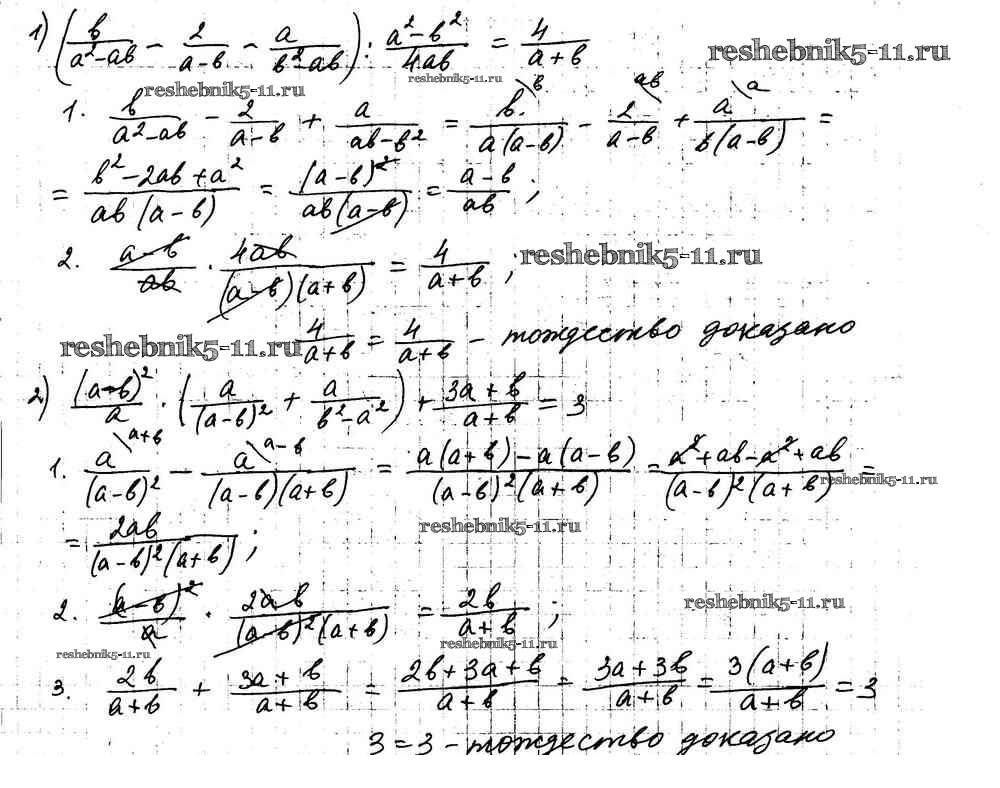 1) (b/(a²-ab) - 2/(a-b) - a/(b²-ab)) : (a²-b²)/(4ab) = 4/(a+b)
reshebnik5-11.ru
reshebnik5-11.ru
reshebnik5-11.ru
1. b/(a²-ab) - 2/(a-b) + a/(ab-b²) = b\b/(a(a-b)) - 2\ab/(a-b) + a\a/(b(a-b)) =
= (b²-2ab+a²)/(ab(a-b)) = (a-b)²/(ab(a-b)) = (a-b)/(ab) ;
2. (a-b)/(ab) · 4ab/((a-b)(a+b)) = 4/(a+b) ;
reshebnik5-11.ru
4/(a+b) = 4/(a+b) - тождество доказано
reshebnik5-11.ru
2) (a-b)²/a · (a/(a-b)² + a/(b²-a²)) + (3a+b)/(a+b) = 3
1. a\a+b/(a-b)² - a\a-b/((a-b)(a+b)) = (a(a+b)-a(a-b))/((a-b)²(a+b)) = (a²+ab-a²+ab)/((a-b)²(a+b)) =
reshebnik5-11.ru
= 2ab/((a-b)²(a+b)) ;
reshebnik5-11.ru
2. (a-b)²/a · 2ab/((a-b)²(a+b)) = 2b/(a+b) ;
reshebnik5-11.ru
reshebnik5-11.ru
reshebnik5-11.ru
3. 2b/(a+b) + (3a+b)/(a+b) = (2b+3a+b)/(a+b) = (3a+3b)/(a+b) = 3(a+b)/(a+b) = 3
3=3 - тождество доказано